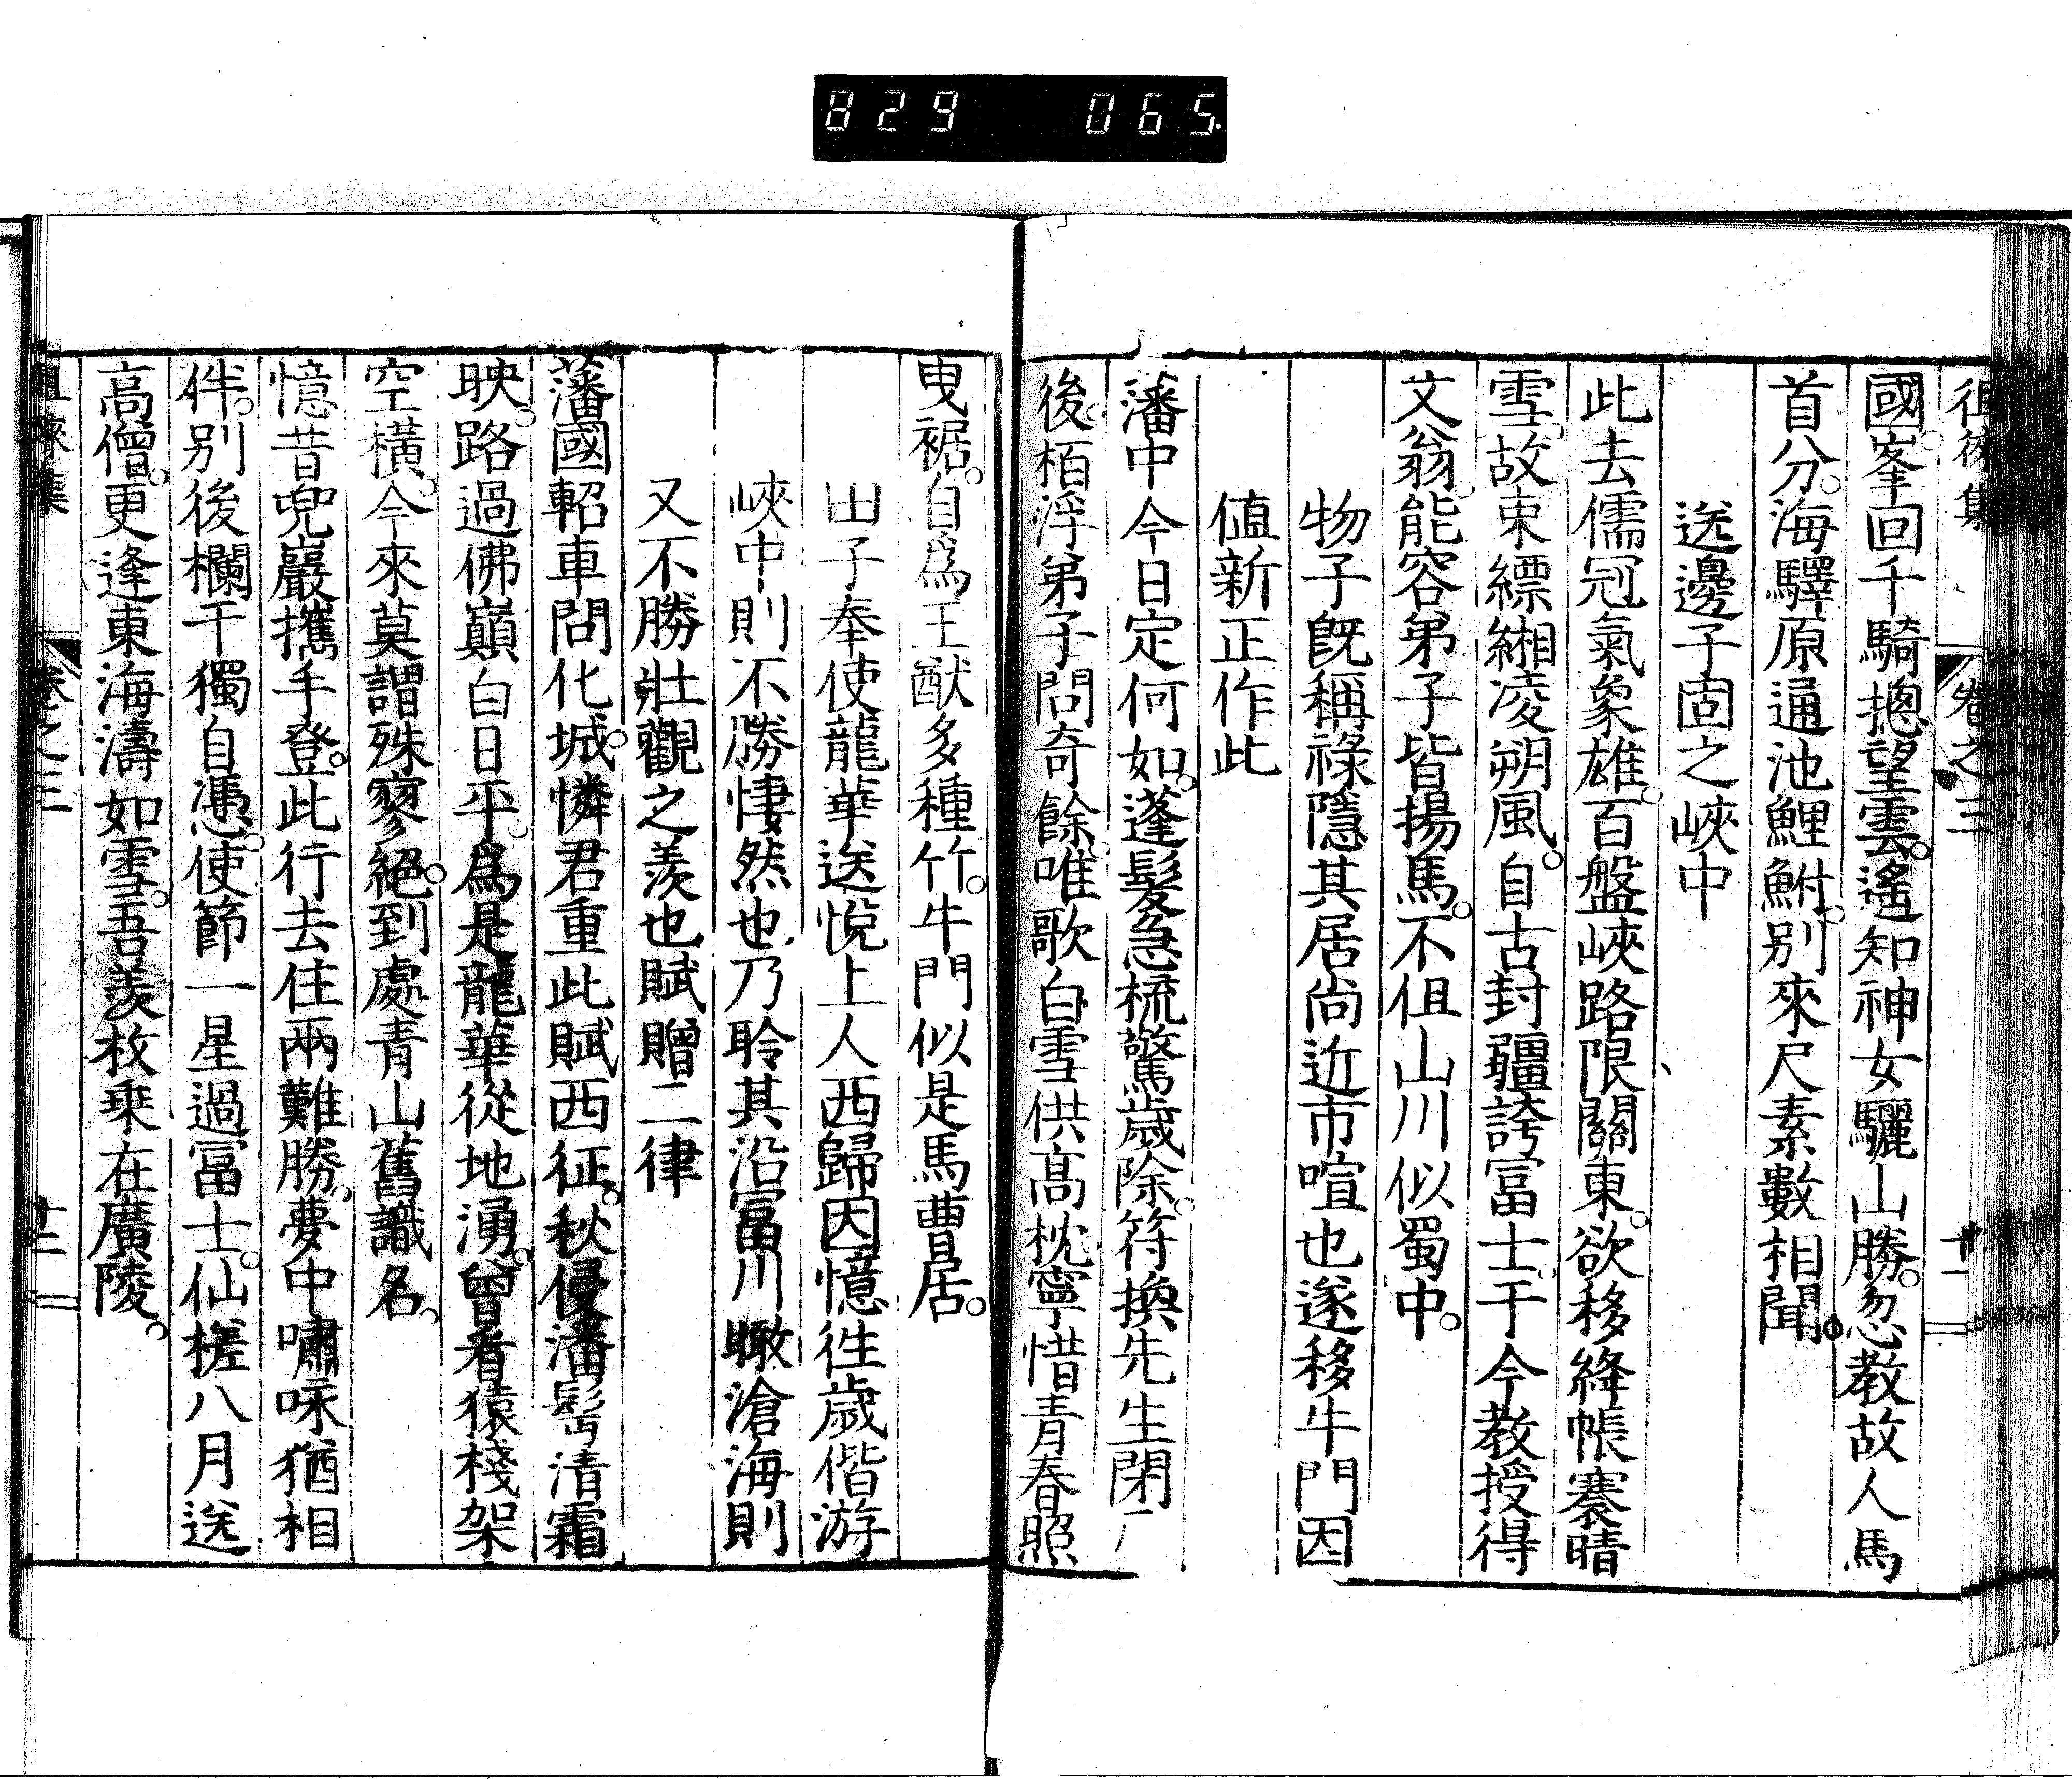 829 065
徂徠集 卷之三 十一
國峯回千騎摠望雲遙知神女驪山勝忽教故人馬
首分海驛原通池鯉鮒别來尺素數相聞
送邊子固之峽中
此去儒冠氣象雄百盤峽路限關東欲移絳帳褰晴
雪故束縹緗凌朔風自古封疆誇冨士于今教授得
文翁能容弟子皆揚馬不伹山川似蜀中
物子旣稱祿隱其居尚近市喧也遂移牛門因
値新正作此
藩中今日定何如蓬髮急梳驚歲除符換先生閑
後栢浮弟子問奇餘唯歌白雪供高枕寧惜青春照
曳裾自爲王猷多種竹牛門似是馬曹居
田子奉使龍華送悅上人西歸因憶徃歲偕游
峽中則不勝悽然也乃聆其沿冨川瞰滄海則
又不勝壯觀之羨也賦贈二律
藩國軺車問化城憐君重此賦西征秋侵潘鬂清霜
映路過佛巓白日平爲是龍華從地湧曾看猿棧架
空橫今來莫謂殊寥絕到處青山舊識名
憶昔兜巖攜手登此行去住兩難勝夢中嘯咏猶相
伴别後欄干獨自憑使節一星過冨士仙槎八月送
高僧更逢東海濤如雪吾羨枚乗在廣陵
徂徠集 卷之三 十二